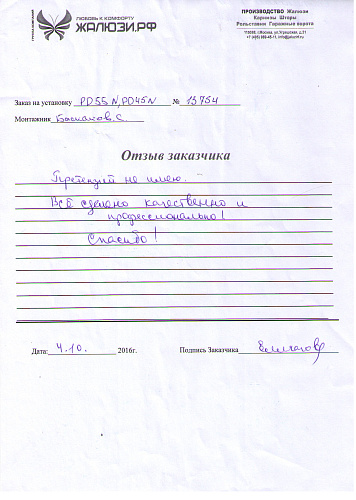 ЛЮБОВЬ К КОМФОРТУ
ЖАЛЮЗИ.РФ
ПРОИЗВОДСТВО Жалюзи
Карнизы Шторы
Рольставни Гаражные ворота
Заказ на установку PD55N, PD45N № 13754
Монтажник
Отзыв заказчика
Претензий не имею.
Всё сделано качественно и
профессионально!
Спасибо!
Дата: 4.10. 2016г. Подпись Заказчика